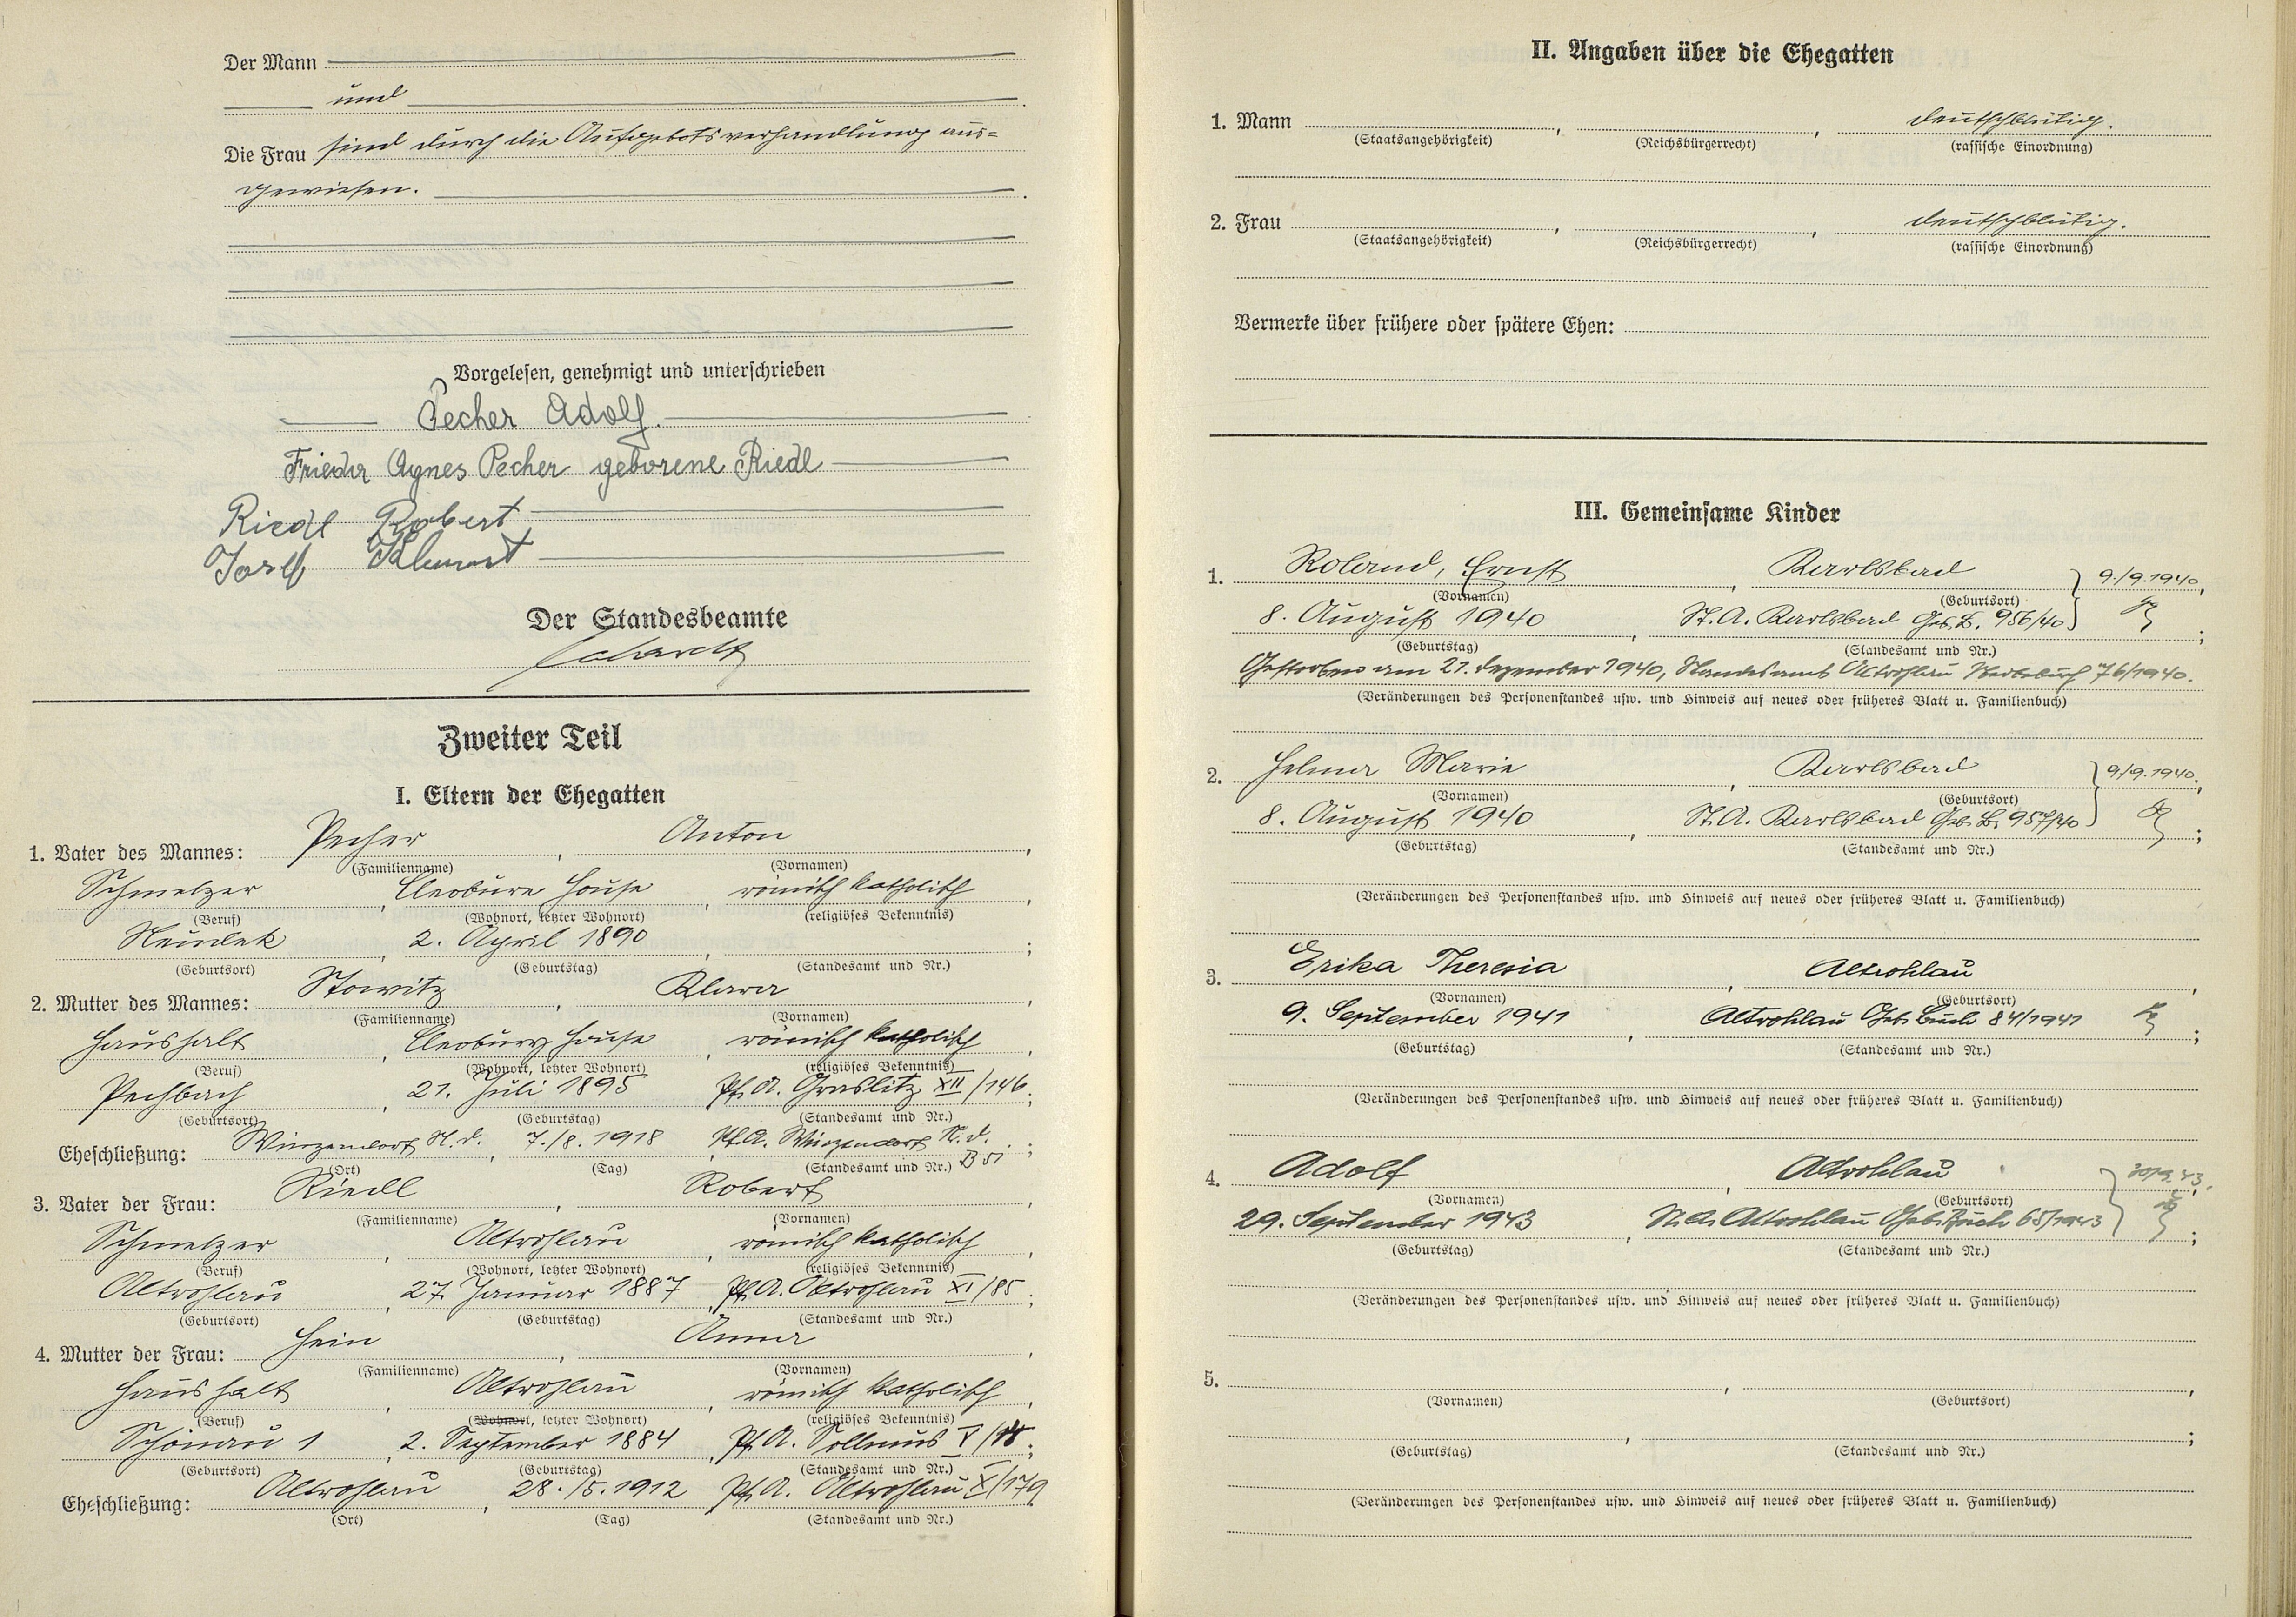 Der Mann
und
Die Frau sind durch die Aufgebotsverhandlung aus=
gewiesen.
Vorgelesen, genehmigt und unterschrieben
Pecher Adolf.
Frieda Agnes Pecher geborene Riedl
Riedl Robert
Josef
Der Standesbeamte
Zweiter Teil
I. Eltern der Ehegatten
1. Vater des Mannes: Pecher, Anton,
(Familienname) (Vornamen)
Schmelzer, römisch katholisch,
(Beruf) (Wohnort, letzter Wohnort) (religiöses Bekenntnis)
Neudek, 2. April 1890, ;
(Geburtsort) (Geburtstag) (Standesamt und Nr.)
2. Mutter des Mannes: Stowitz, Klara,
(Familienname) (Vornamen)
Haushalt, römisch katholisch,
(Beruf) (Wohnort, letzter Wohnort) (religiöses Bekenntnis)
Pechbach, 21. Juli 1895, Pf. A. Graslitz XII/146;
(Geburtsort) (Geburtstag) (Standesamt und Nr.)
Eheschließung: Winzendorf N. d., 7./8. 1918, Pf. A. Winzendorf N. d. B 51;
(Ort) (Tag) (Standesamt und Nr.)
3. Vater der Frau: Riedl, Robert,
(Familienname) (Vornamen)
Schmelzer, Altrohlau, römisch katholisch,
(Beruf) (Wohnort, letzter Wohnort) (religiöses Bekenntnis)
Altrohlau, 27. Januar 1887, Pf. A. Altrohlau XI/85;
(Geburtsort) (Geburtstag) (Standesamt und Nr.)
4. Mutter der Frau: Hein, Anna,
(Familienname) (Vornamen)
Haushalt, Altrohlau, römisch katholisch,
(Beruf) (Wohnort, letzter Wohnort) (religiöses Bekenntnis)
Schönau 1, 2. September 1884, Pf. A. Sollmus V/;
(Geburtsort) (Geburtstag) (Standesamt und Nr.)
Eheschließung: Altrohlau, 28./5. 1912 Pf. A. Altrohlau X/179
(Ort) (Tag) (Standesamt und Nr.)
II. Angaben über die Ehegatten
1. Mann , , deutschblütig.
(Staatsangehörigkeit) (Reichsbürgerrecht) (rassische Einordnung)
2. Frau , , deutschblütig.
(Staatsangehörigkeit) (Reichsbürgerrecht) (rassische Einordnung)
Vermerke über frühere oder spätere Ehen:
III. Gemeinsame Kinder
1. Roland, Ernst, Karlsbad 9./9. 1940,
(Vornamen) (Geburtsort)
8. August 1940, St. A. Karlsbad Geb. B. 956/40;
(Geburtstag) (Standesamt und Nr.)
Gestorben am 21. Dezember 1940, Standesamt Altrohlau Sterbebuch 76/1940.
(Veränderungen des Personenstandes usw. und Hinweis auf neues oder früheres Blatt u. Familienbuch)
2. Helma Marie, Karlsbad 9./9. 1940,
(Vornamen) (Geburtsort)
8. August 1940, St. A. Karlsbad Geb. B. 957/40;
(Geburtstag) (Standesamt und Nr.)
(Veränderungen des Personenstandes usw. und Hinweis auf neues oder früheres Blatt u. Familienbuch)
3. Erika Theresia, Altrohlau,
(Vornamen) (Geburtsort)
9. September 1941, Altrohlau Geb. Buch 84/1941;
(Geburtstag) (Standesamt und Nr.)
(Veränderungen des Personenstandes usw. und Hinweis auf neues oder früheres Blatt u. Familienbuch)
4. Adolf, Altrohlau
(Vornamen) (Geburtsort)
29. September 1943, St. A. Altrohlau Geb. Buch 65/1943;
(Geburtstag) (Standesamt und Nr.)
(Veränderungen des Personenstandes usw. und Hinweis auf neues oder früheres Blatt u. Familienbuch)
5. , ,
(Vornamen) (Geburtsort)
, ;
(Geburtstag) (Standesamt und Nr.)
(Veränderungen des Personenstandes usw. und Hinweis auf neues oder früheres Blatt u. Familienbuch)